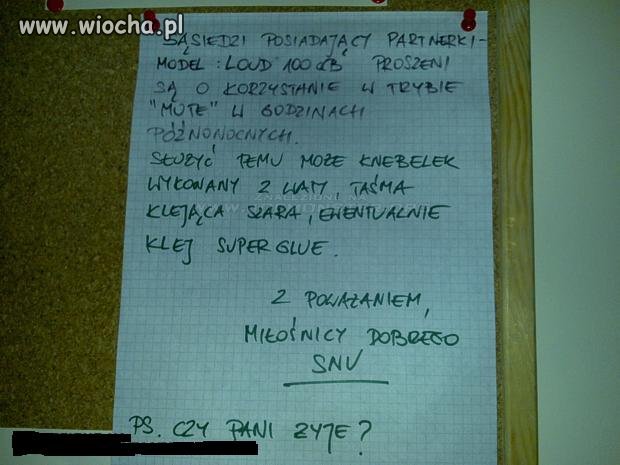 www.wiocha.pl
SĄSIEDZI POSIADAJĄCY PARTNERKI -
MODEL : LOUD 100 dB PROSZENI
SĄ O KORZYSTANIE W TRYBIE
"MUTE" W GODZINACH
PÓŹNONOCNYCH.
SŁUŻYĆ TEMU MOŻE KNEBELEK
WYKONANY Z WATY, TAŚMA
KLEJĄCA SZARA, EWENTUALNIE
KLEJ SUPER GLUE.
Z POWAŻANIEM,
MIŁOŚNICY DOBREGO
SNU
PS. CZY PANI ŻYJE?